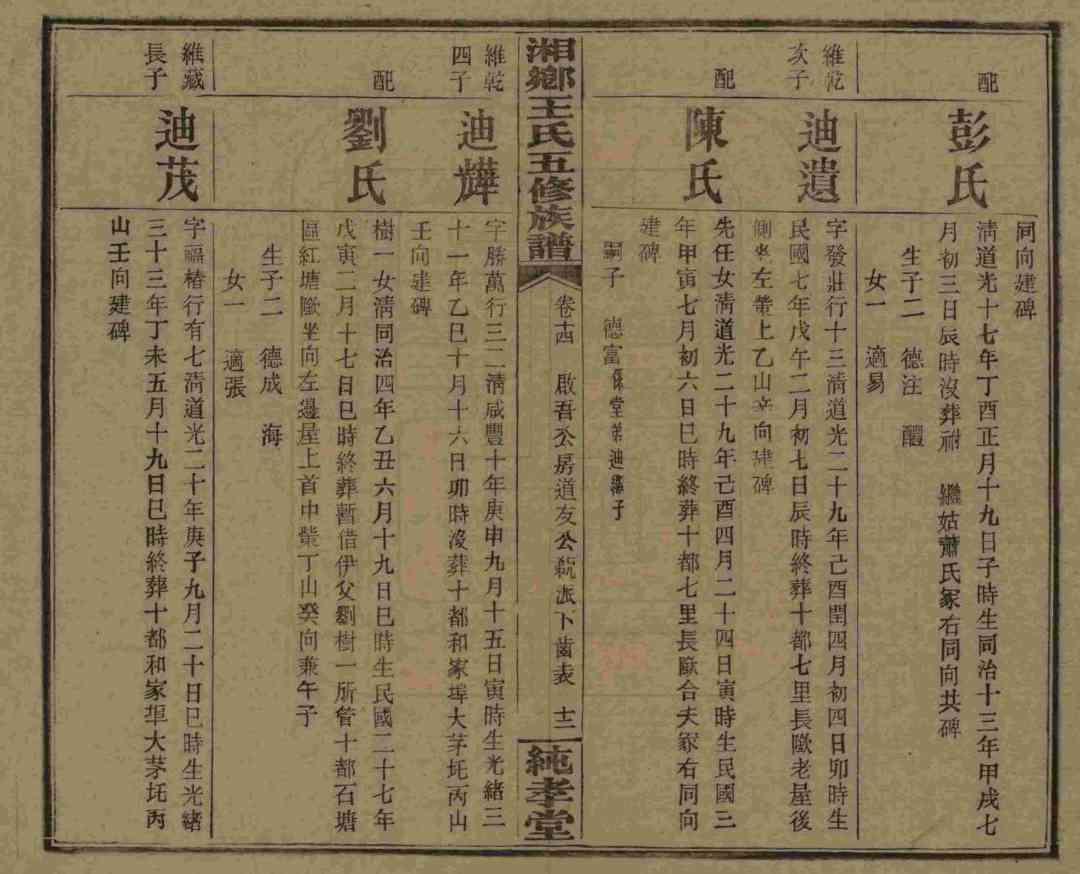 同向建碑
配
彭氏
清道光十七年丁酉正月十九日子時生同治十三年甲戌七
月初三日辰時沒葬祔 繼姑蕭氏冢右同向共碑
生子二 德注 醴
女一 適易
維乾
次子
迪遺
字發莊行十三清道光二十九年己酉閏四月初四日卯時生
民國七年戊午二月初七日辰時終葬十都七里長歐老屋後
側 左 上乙山辛向建碑
配
陳氏
先任女清道光二十九年己酉四月二十四日寅時生民國三
年甲寅七月初六日巳時終葬十都七里長歐合夫冢右同向
建碑
嗣子 德富 堂弟迪 子
湘鄉王氏五修族譜
卷十四 啟吾公房道友公 派下齒表 十二
純孝堂
維乾
四子
迪韡
字勝萬行三二清咸豐十年庚申九月十五日寅時生光緒三
十一年乙巳十月十六日卯時沒葬十都和家埠大茅坵丙山
壬向建碑
配
劉氏
樹一女清同治四年乙丑六月十九日巳時生民國二十七年
戊寅二月十七日巳時終葬暫借伊父劉樹一所管十都石塘
區紅塘歐坐向左邊屋上首中 丁山癸向兼午子
生子二 德成 海
女一 適張
維藏
長子
迪茂
字福椿行有七清道光二十年庚子九月二十日巳時生光緒
三十三年丁未五月十九日巳時終葬十都和家埠大茅坵丙
山壬向建碑